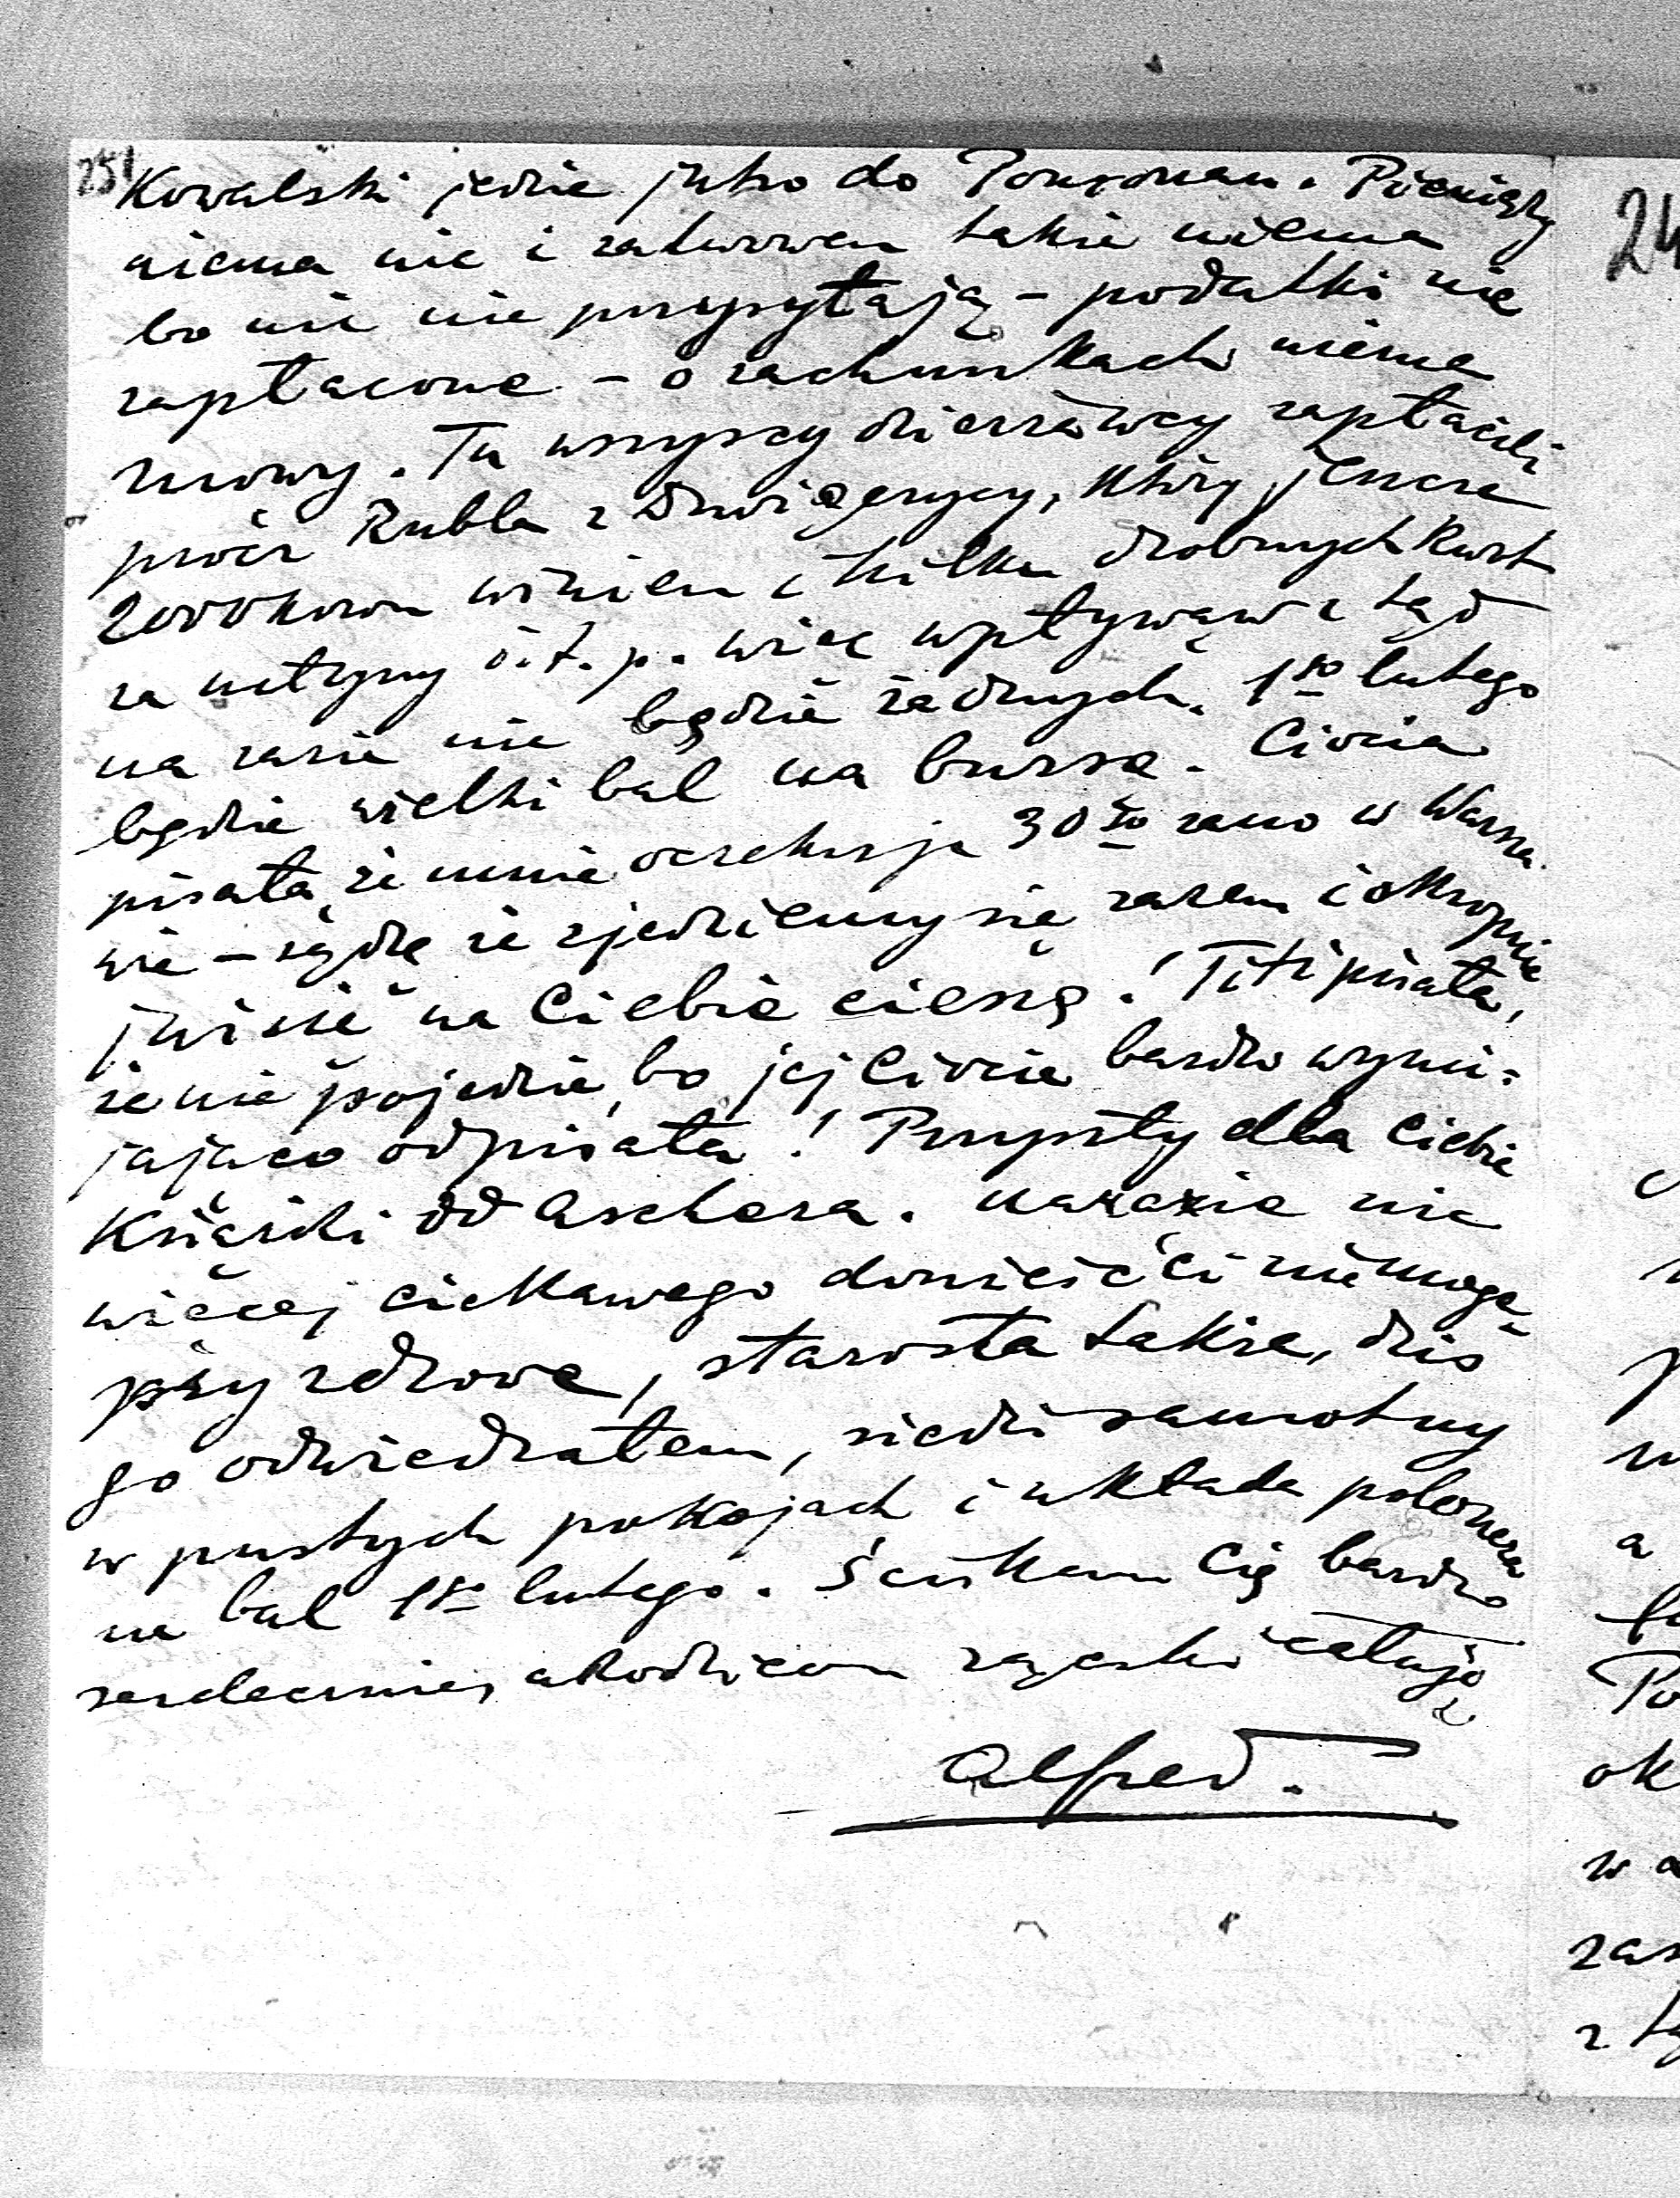 251
Kowalski jedzie jutro do Poturzan. Pieniędzy
niema nic i zaliczek także niema
bo nic nie przysyłają – podatki nie
zapłacone – o rachunkach niema
mowy. Tu wszyscy dzierżawcy zapłacili
prócz Rubla z Dźwigęrycy, który jeszcze
2000 koron winien i kilku drobnych kwot
za młyny i.t.p. więc wpływów z tąd
na razie nie będzie żadnych. 1go lutego
będzie wielki bal na bursę. Ciocia
pisała, że mnie oczekuje 30go rano w Warsza-
wie – sądzę że zjedziemy się razem i okropnie
już się na Ciebie cieszę! Titi pisała,
że nie pojedzie, bo jej Ciocia bardzo wymi-
jająco odpisała! Przyszły dla Ciebie
Książki od Aschera. narazie nic
więcej ciekawego donieść Ci nie mogę –
psy zdrowe, starosta także, dziś
go odwiedzałem, siedzi samotny
w pustych pokojach i układa poloneza
na bal 1go lutego. Ściskam Cię bardzo
serdecznie, a Rodzicom rączki całuję
Alfred.
24